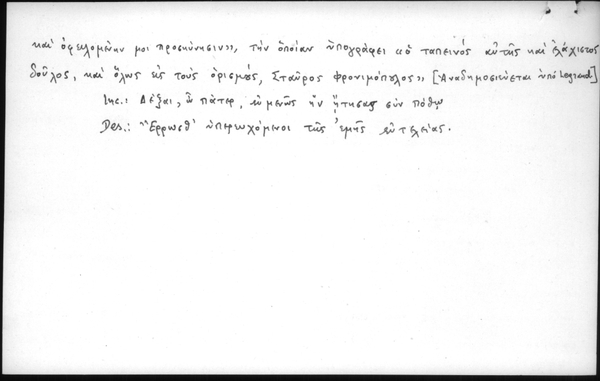 καὶ ὀφειλομένην μοι προσκύνησιν», τὴν ὁποίαν ὑπογράφει «ὁ ταπεινός αὐτῆς καὶ ἐλάχιστος
δοῦλος, καὶ ὅλως εἰς τοὺς ὁρισμούς, Σταῦρος Φρονιμόπουλος» [Ἀναδημοσιεύεται ὑπὸ Legrand]
Inc.: Δέξαι, ὦ πάτερ, εὐμενῶς ἣν ᾔτησας σὺν πόθῳ
Des.: Ἔρρωσθ' ὑπερευχόμενοι τῆς ἐμῆς εὐτελείας.